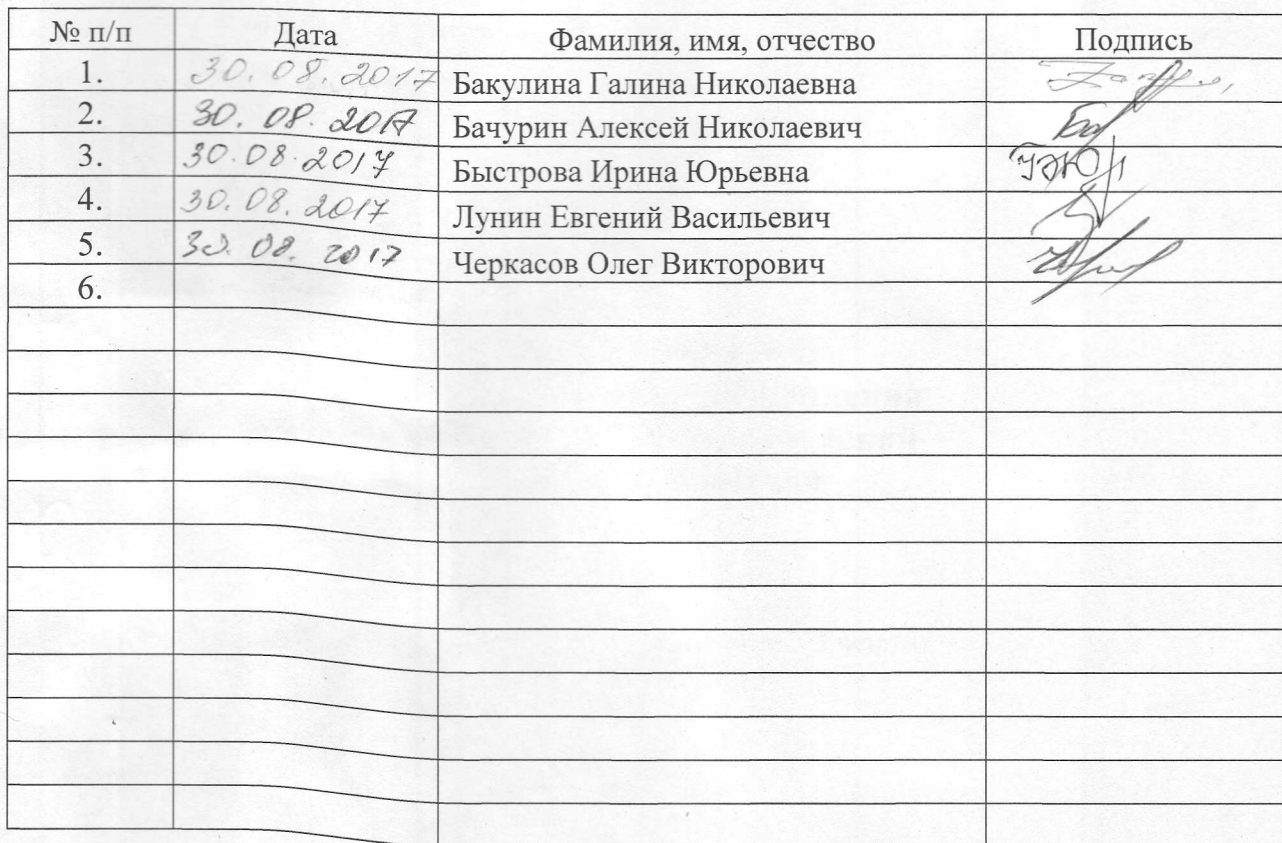 № п/п Дата Фамилия, имя, отчество Подпись
1. 30.08.2017 Бакулина Галина Николаевна
2. 30.08.2017 Бачурин Алексей Николаевич
3. 30.08.2017 Быстрова Ирина Юрьевна
4. 30.08.2017 Лунин Евгений Васильевич
5. 30.08.2017 Черкасов Олег Викторович
6.